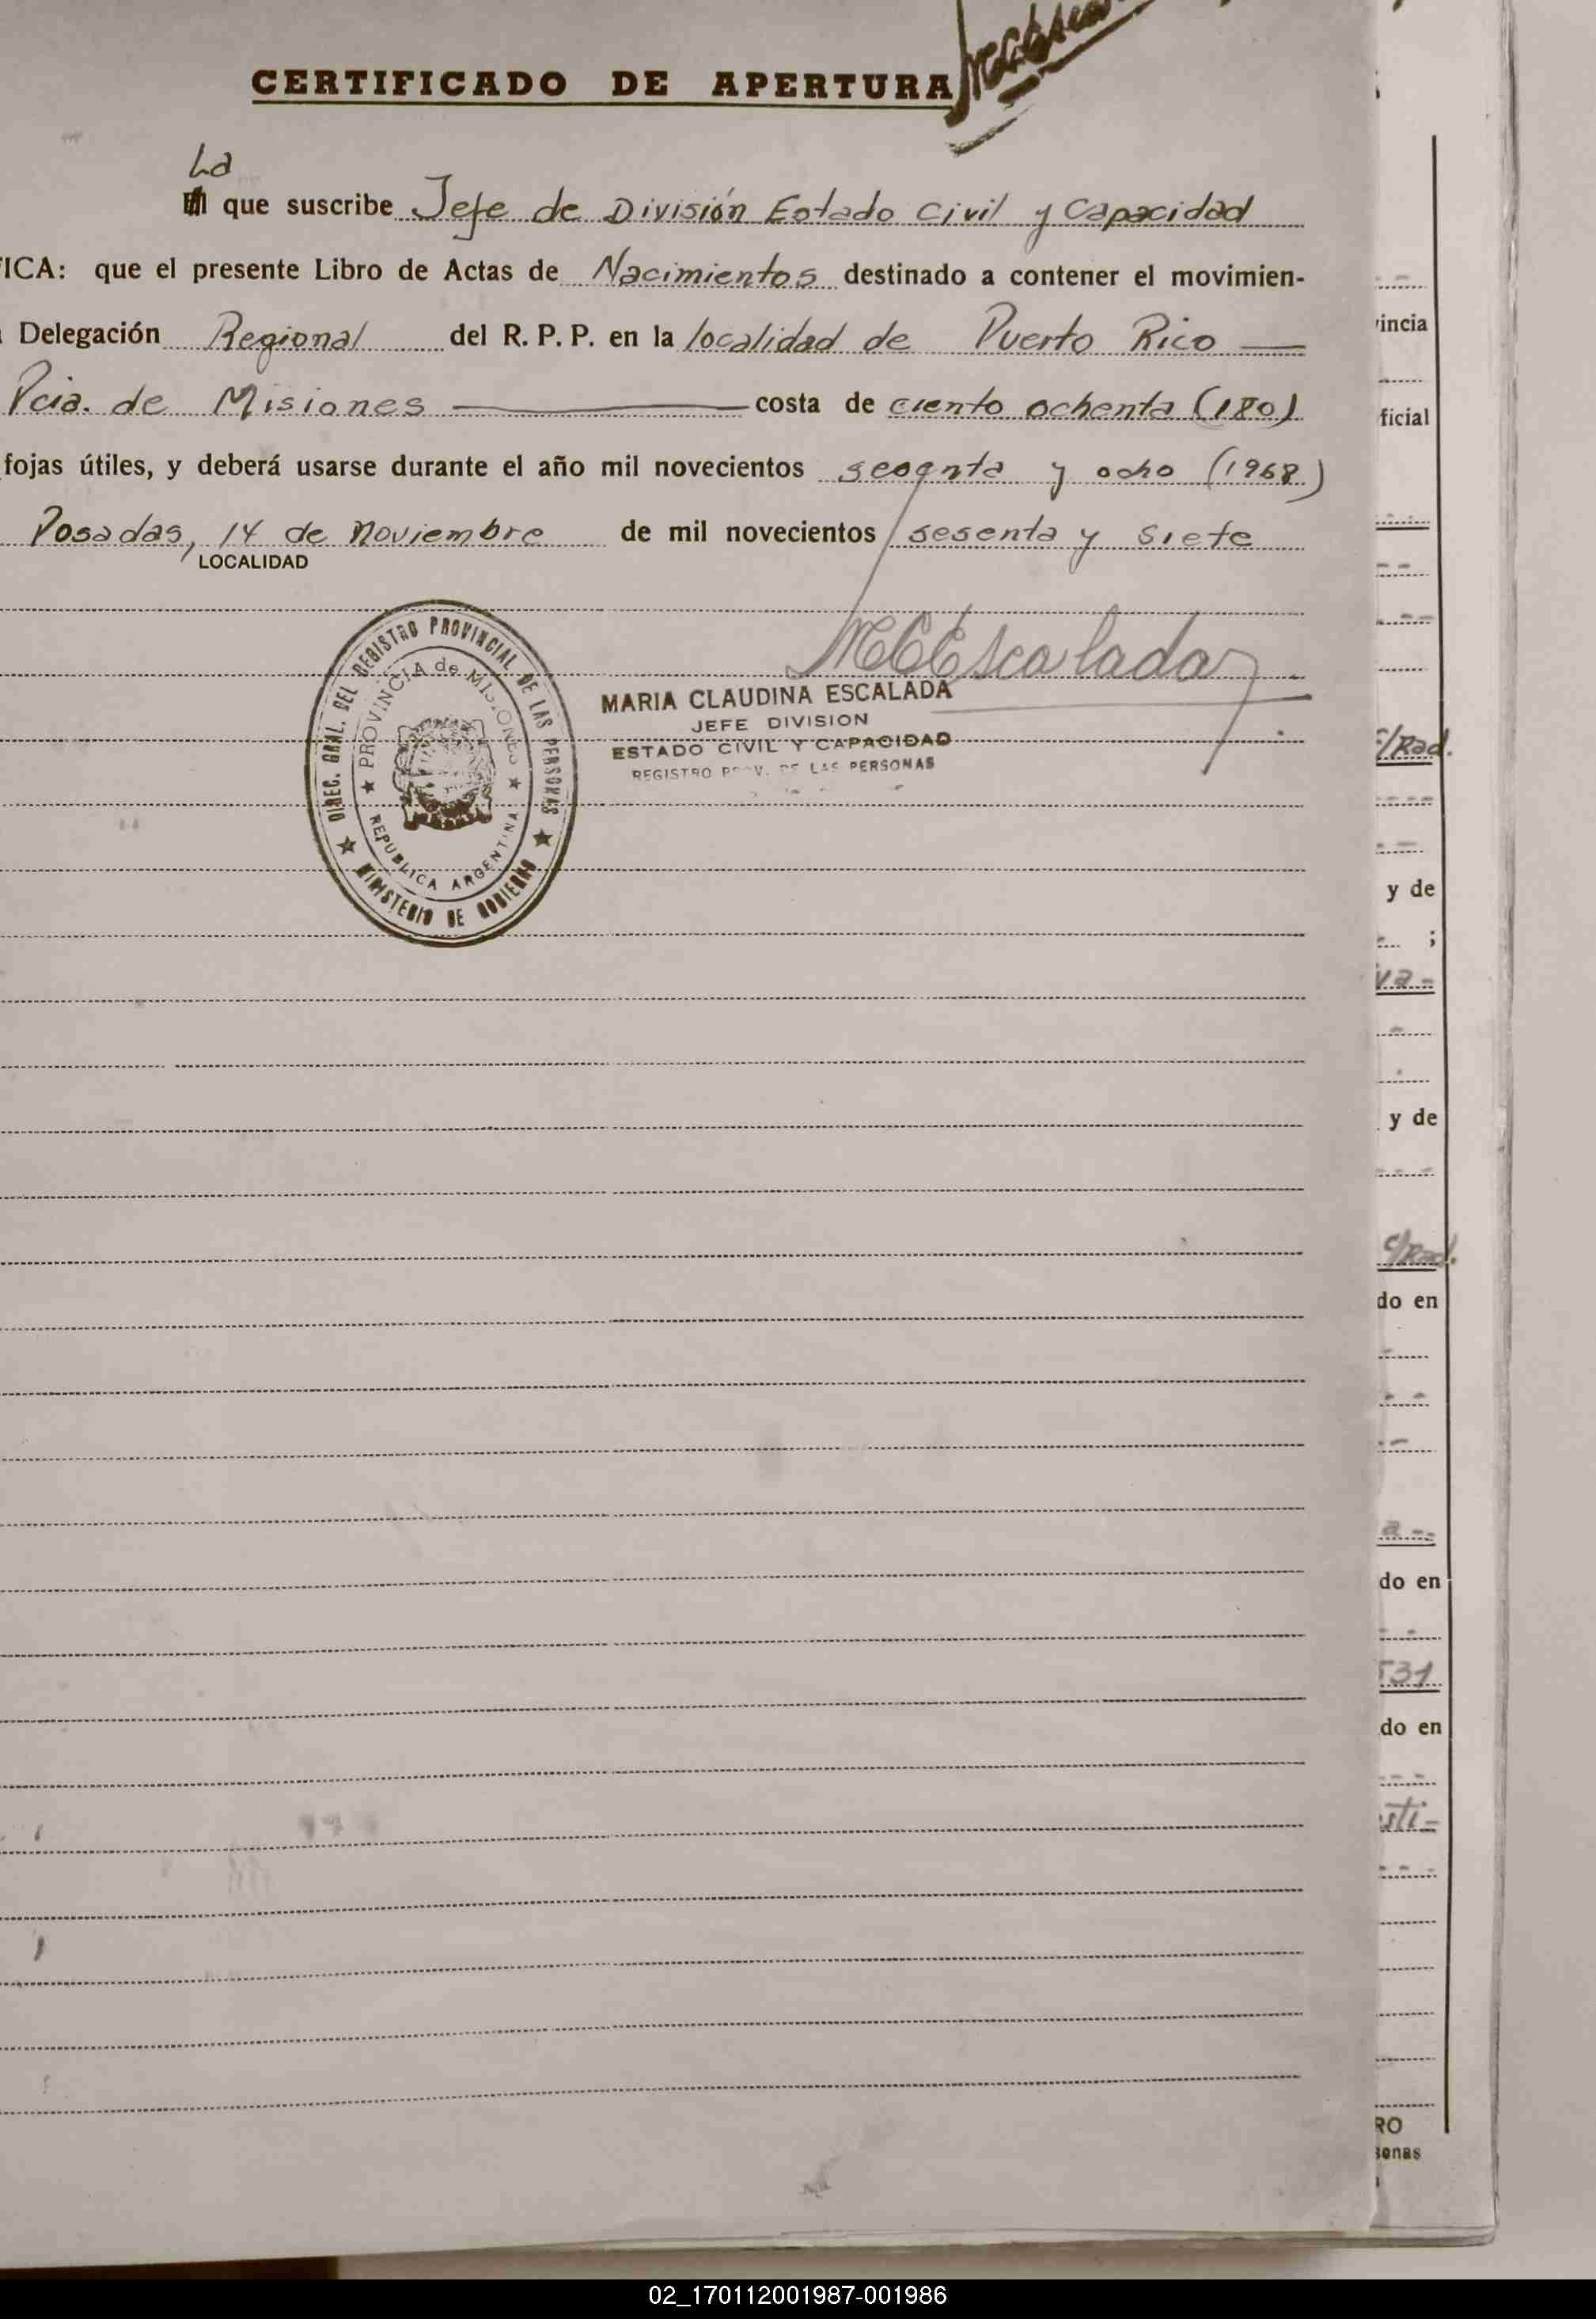 CERTIFICADO DE APERTURA
La
que suscribe Jefe de División Estado Civil y Capacidad
FICA: que el presente Libro de Actas de Nacimientos destinado a contener el movimien-
Delegación Regional del R. P. P. en la localidad de Puerto Rico
Pcia. de Misiones costa de ciento ochenta (180)
fojas útiles, y deberá usarse durante el año mil novecientos y ocho (1968)
Posadas, 14 de Noviembre de mil novecientos sesenta y siete
LOCALIDAD
DIREC. GRAL. DEL REGISTRO PROVINCIAL DE LAS PERSONAS
PROVINCIA de MISIONES
REPUBLICA ARGENTINA
MINISTERIO DE GOBIERNO
MCEscalada
MARIA CLAUDINA ESCALADA
JEFE DIVISION
ESTADO CIVIL Y CAPACIDAD
REGISTRO PROV. DE LAS PERSONAS
vincia
ficial
c/Rad.
y de
;
va-
y de
c/Rad.
do en
a-
do en
531
do en
sti-
RO
sonas
02_170112001987-001986